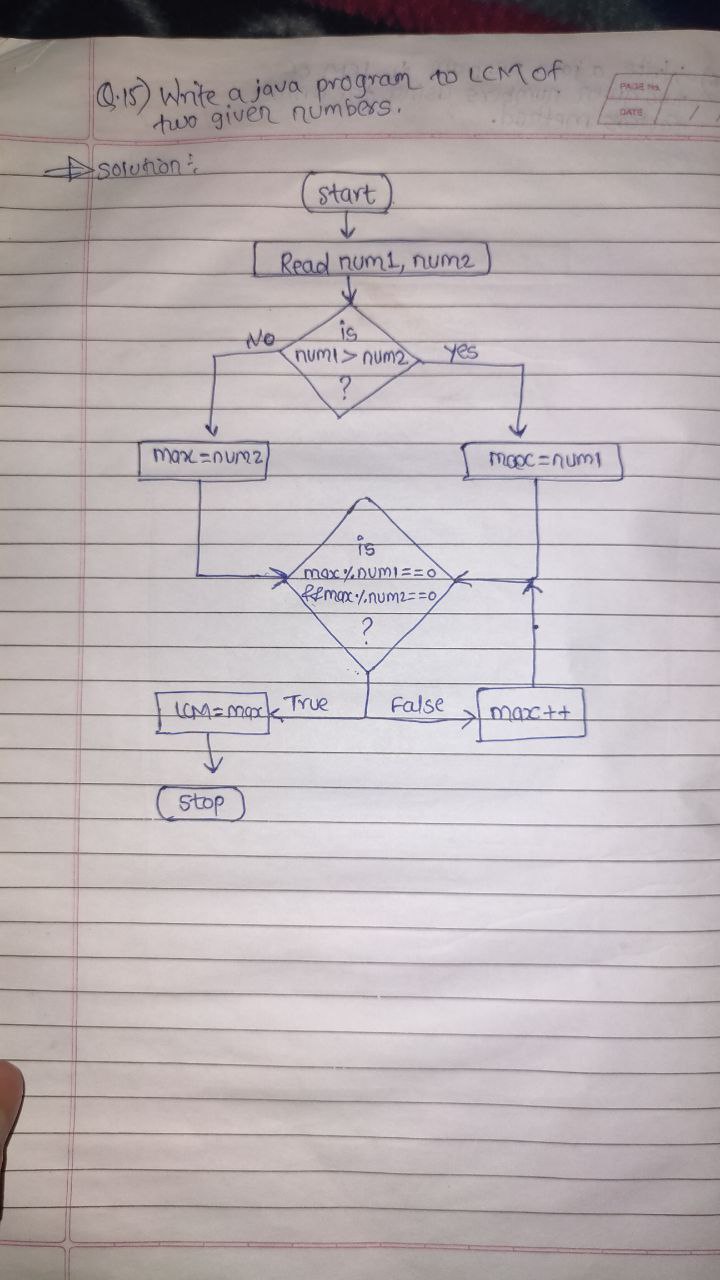 Q.15) Write a java program to LCM of
two given numbers.
PAGE No.
DATE
/ /
Solution:
Start
Read num1, num2
is
num1 > num2
?
No
yes
max = num2
max = num1
is
max % num1 == 0
&& max % num2 == 0
?
True
False
LCM = max
max++
Stop